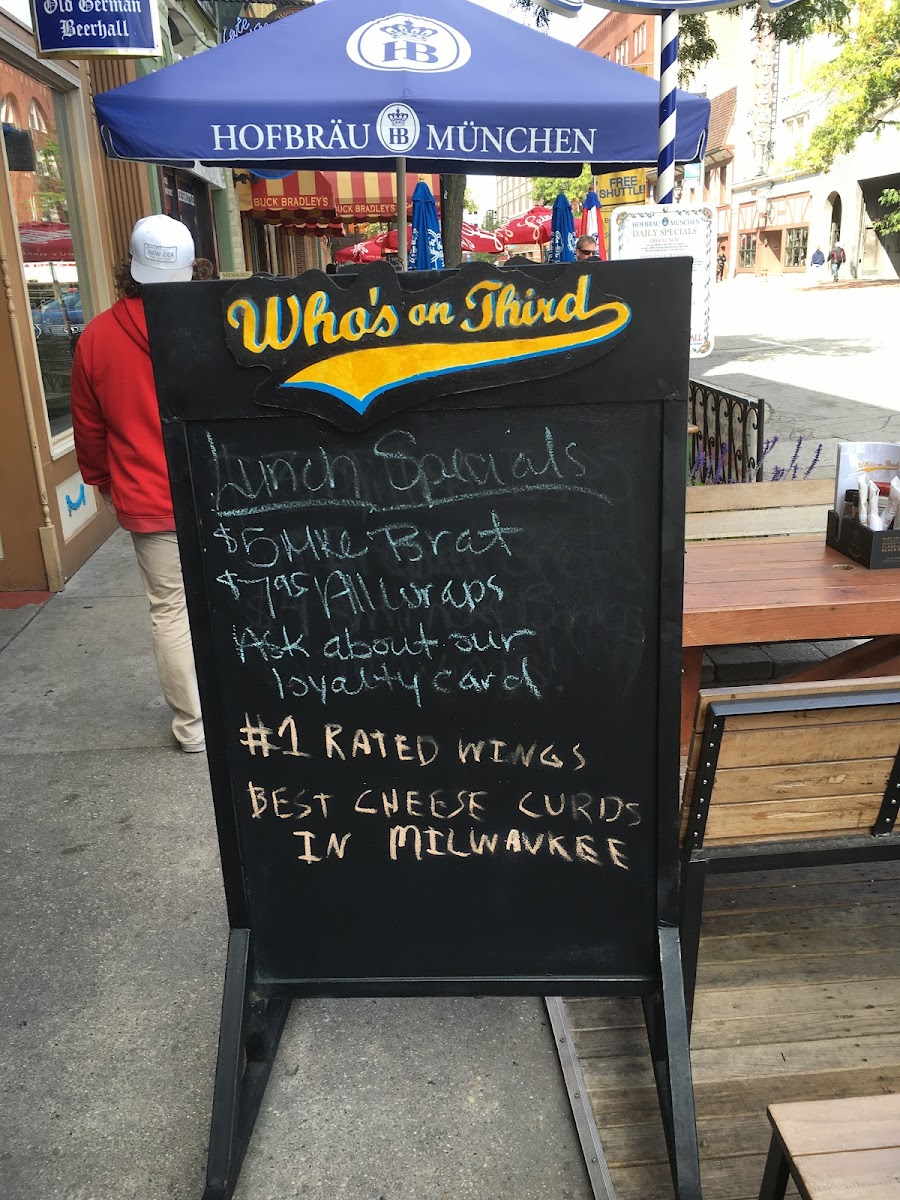 Old German
Beerhall
HB
HOFBRÄU HB MÜNCHEN
BUCK BRADLEY'S
BUCK BRADLEY'S
FREE
SHUTTLE
HOFBRÄU MÜNCHEN
DAILY SPECIALS
NEW ERA
Who's on Third
Lunch Specials
$5 MKE Brat
$7.95 All wraps
Ask about our
loyalty card
#1 RATED WINGS
BEST CHEESE CURDS
IN MILWAUKEE
Who's on Third